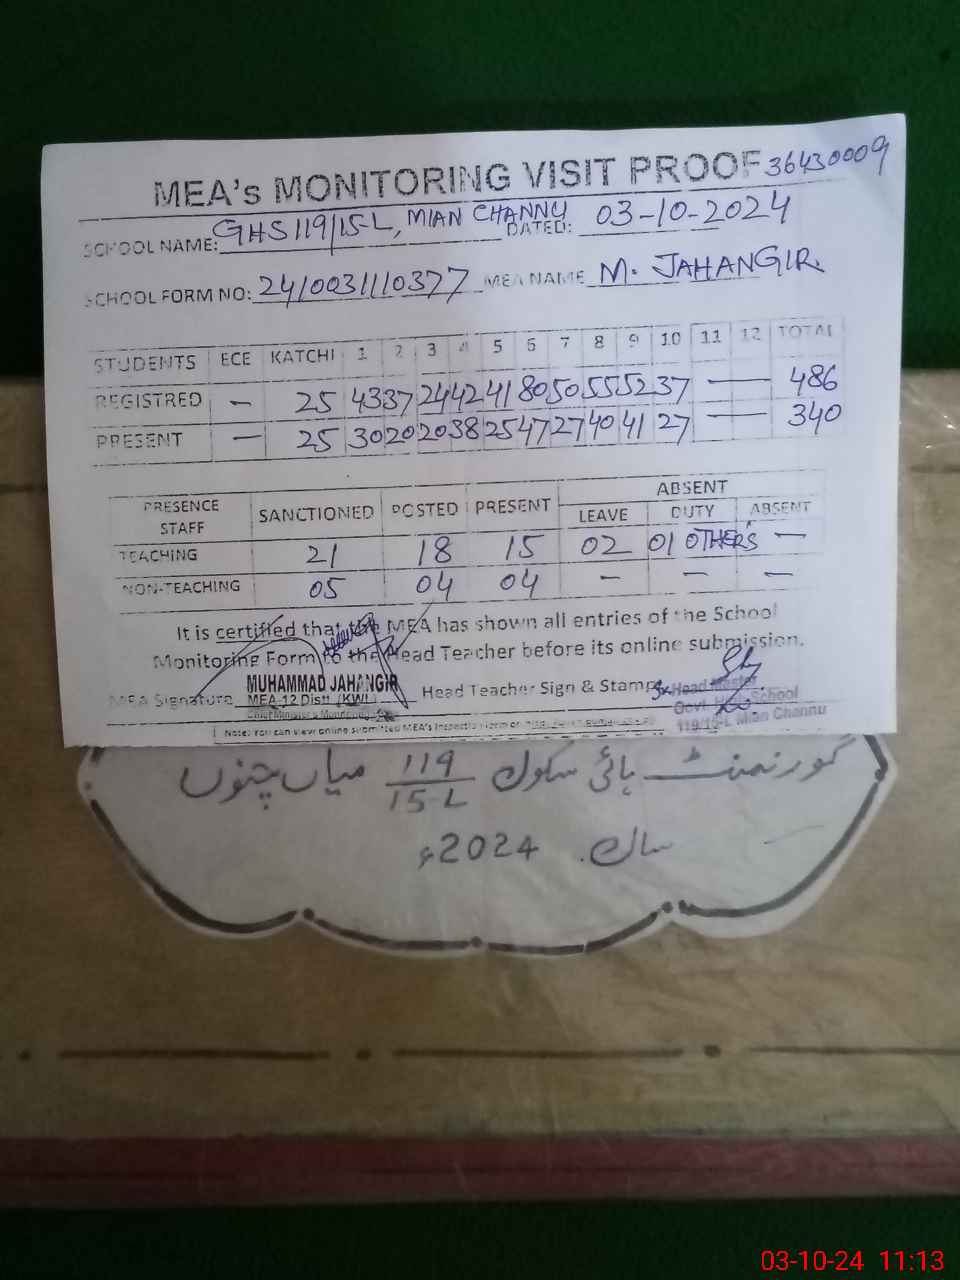 MEA's MONITORING VISIT PROOF 36430009
SCHOOL NAME: GHS 119/15-L, MIAN CHANNU DATED: 03-10-2024
SCHOOL FORM NO: 2410031110377 MEA NAME M. JAHANGIR.
STUDENTS ECE KATCHI 1 2 3 4 5 6 7 8 9 10 11 12 TOTAL
REGISTRED — 25 43 37 24 42 41 80 50 55 52 37 — 486
PRESENT — 25 30 20 20 38 25 47 27 40 41 27 — 340
PRESENCE STAFF SANCTIONED POSTED PRESENT ABSENT
LEAVE DUTY ABSENT
TEACHING 21 18 15 02 01 OTHERS —
NON-TEACHING 05 04 04 — — —
It is certified that the MEA has shown all entries of the School
Monitoring Form to the Head Teacher before its online submission.
MEA Signature MUHAMMAD JAHANGIR Head Teacher Sign & Stamp Head Master
MEA-12 Distt (KWL) Govt. High School
119/15-L Mian Channu
Note: You can view online submitted MEA's
گورنمنٹ ہائی سکول 119/15-L میاں چنوں
سال 2024ء
03-10-24 11:13